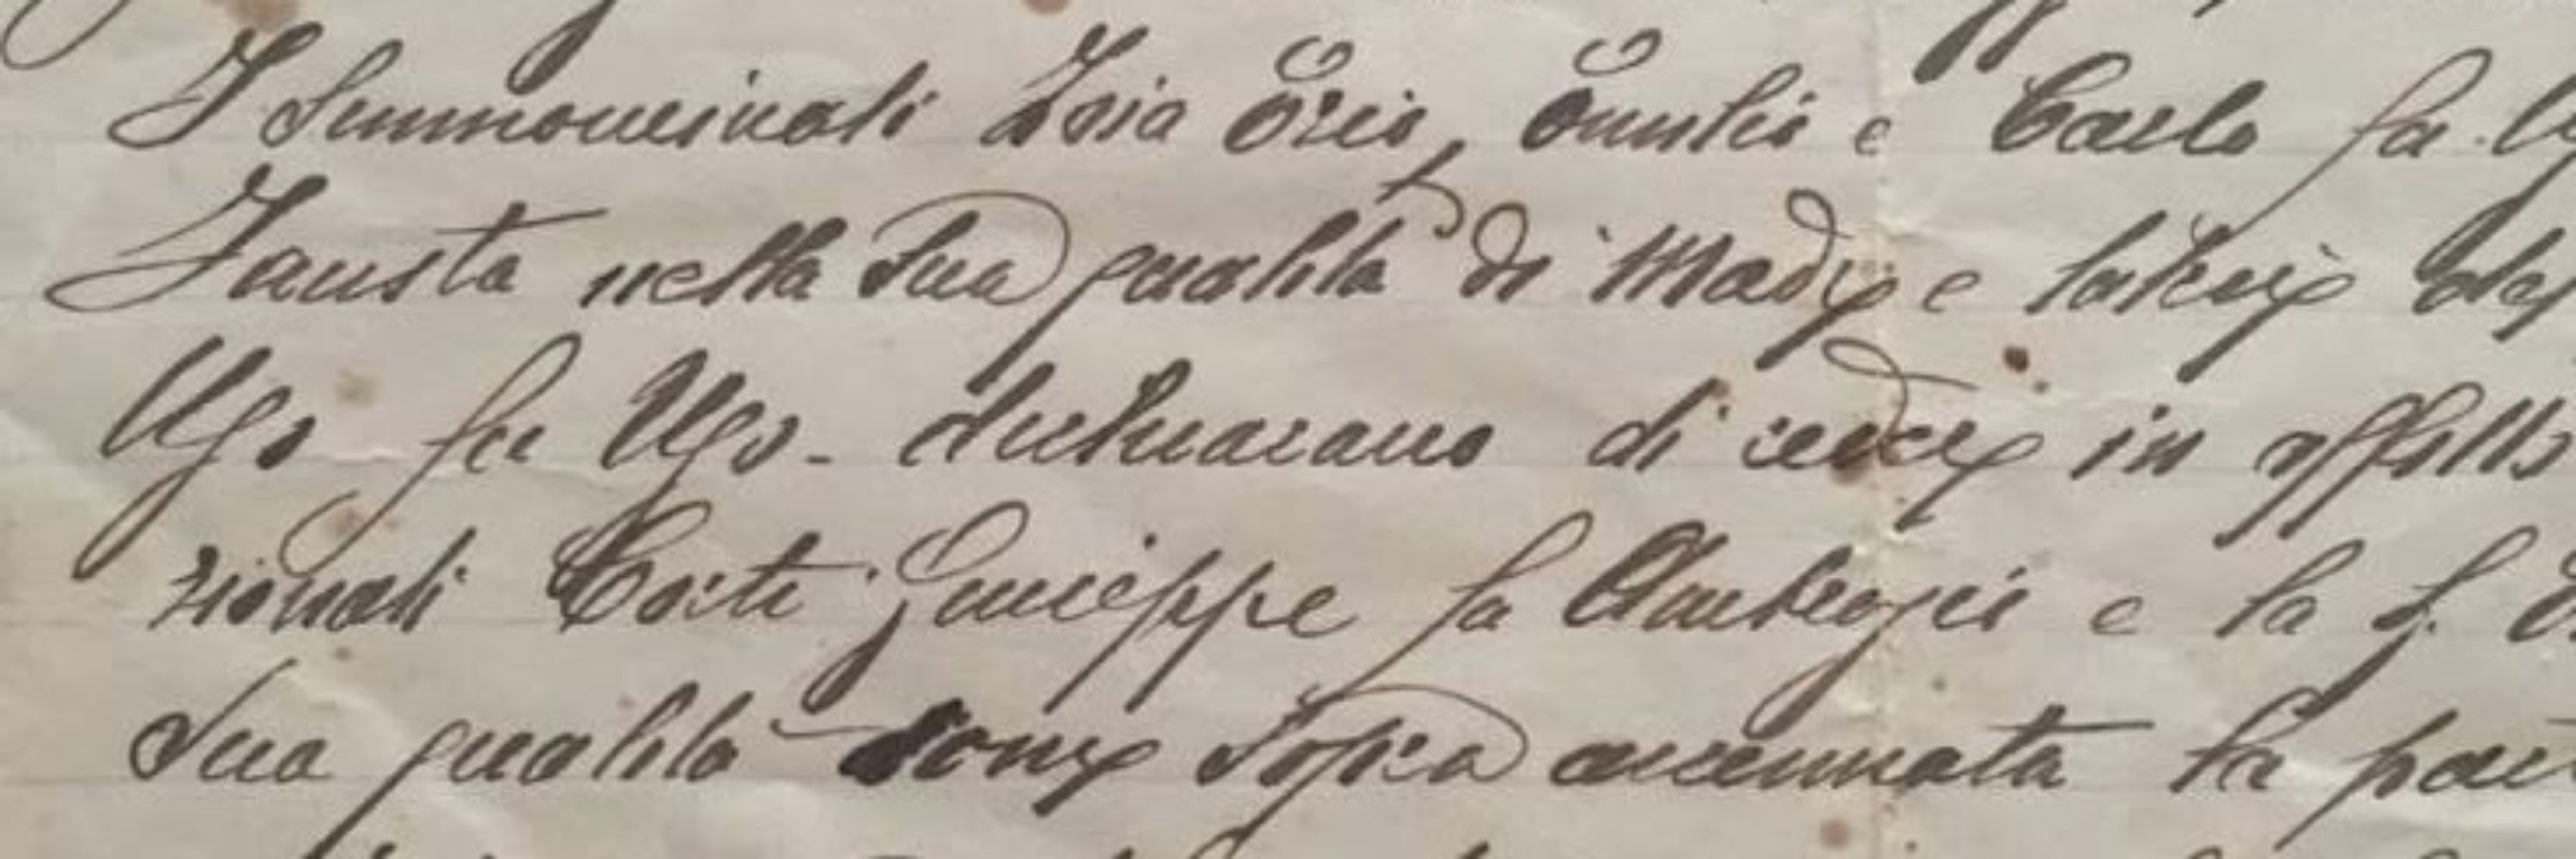 I Summominati Isia Ezio, Emilio e Carlo fu
Fausta nella sua qualità di Madre e tutrice
Ugo fu Ugo - dichiarano di cedere in affitto
zionati Corti Giuseppe fu Ambrogio e la S.
sua qualità come sopra accennata la